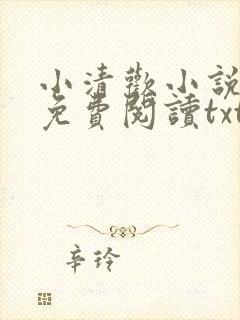 小清歡小說
免費閱讀txt
辛玲